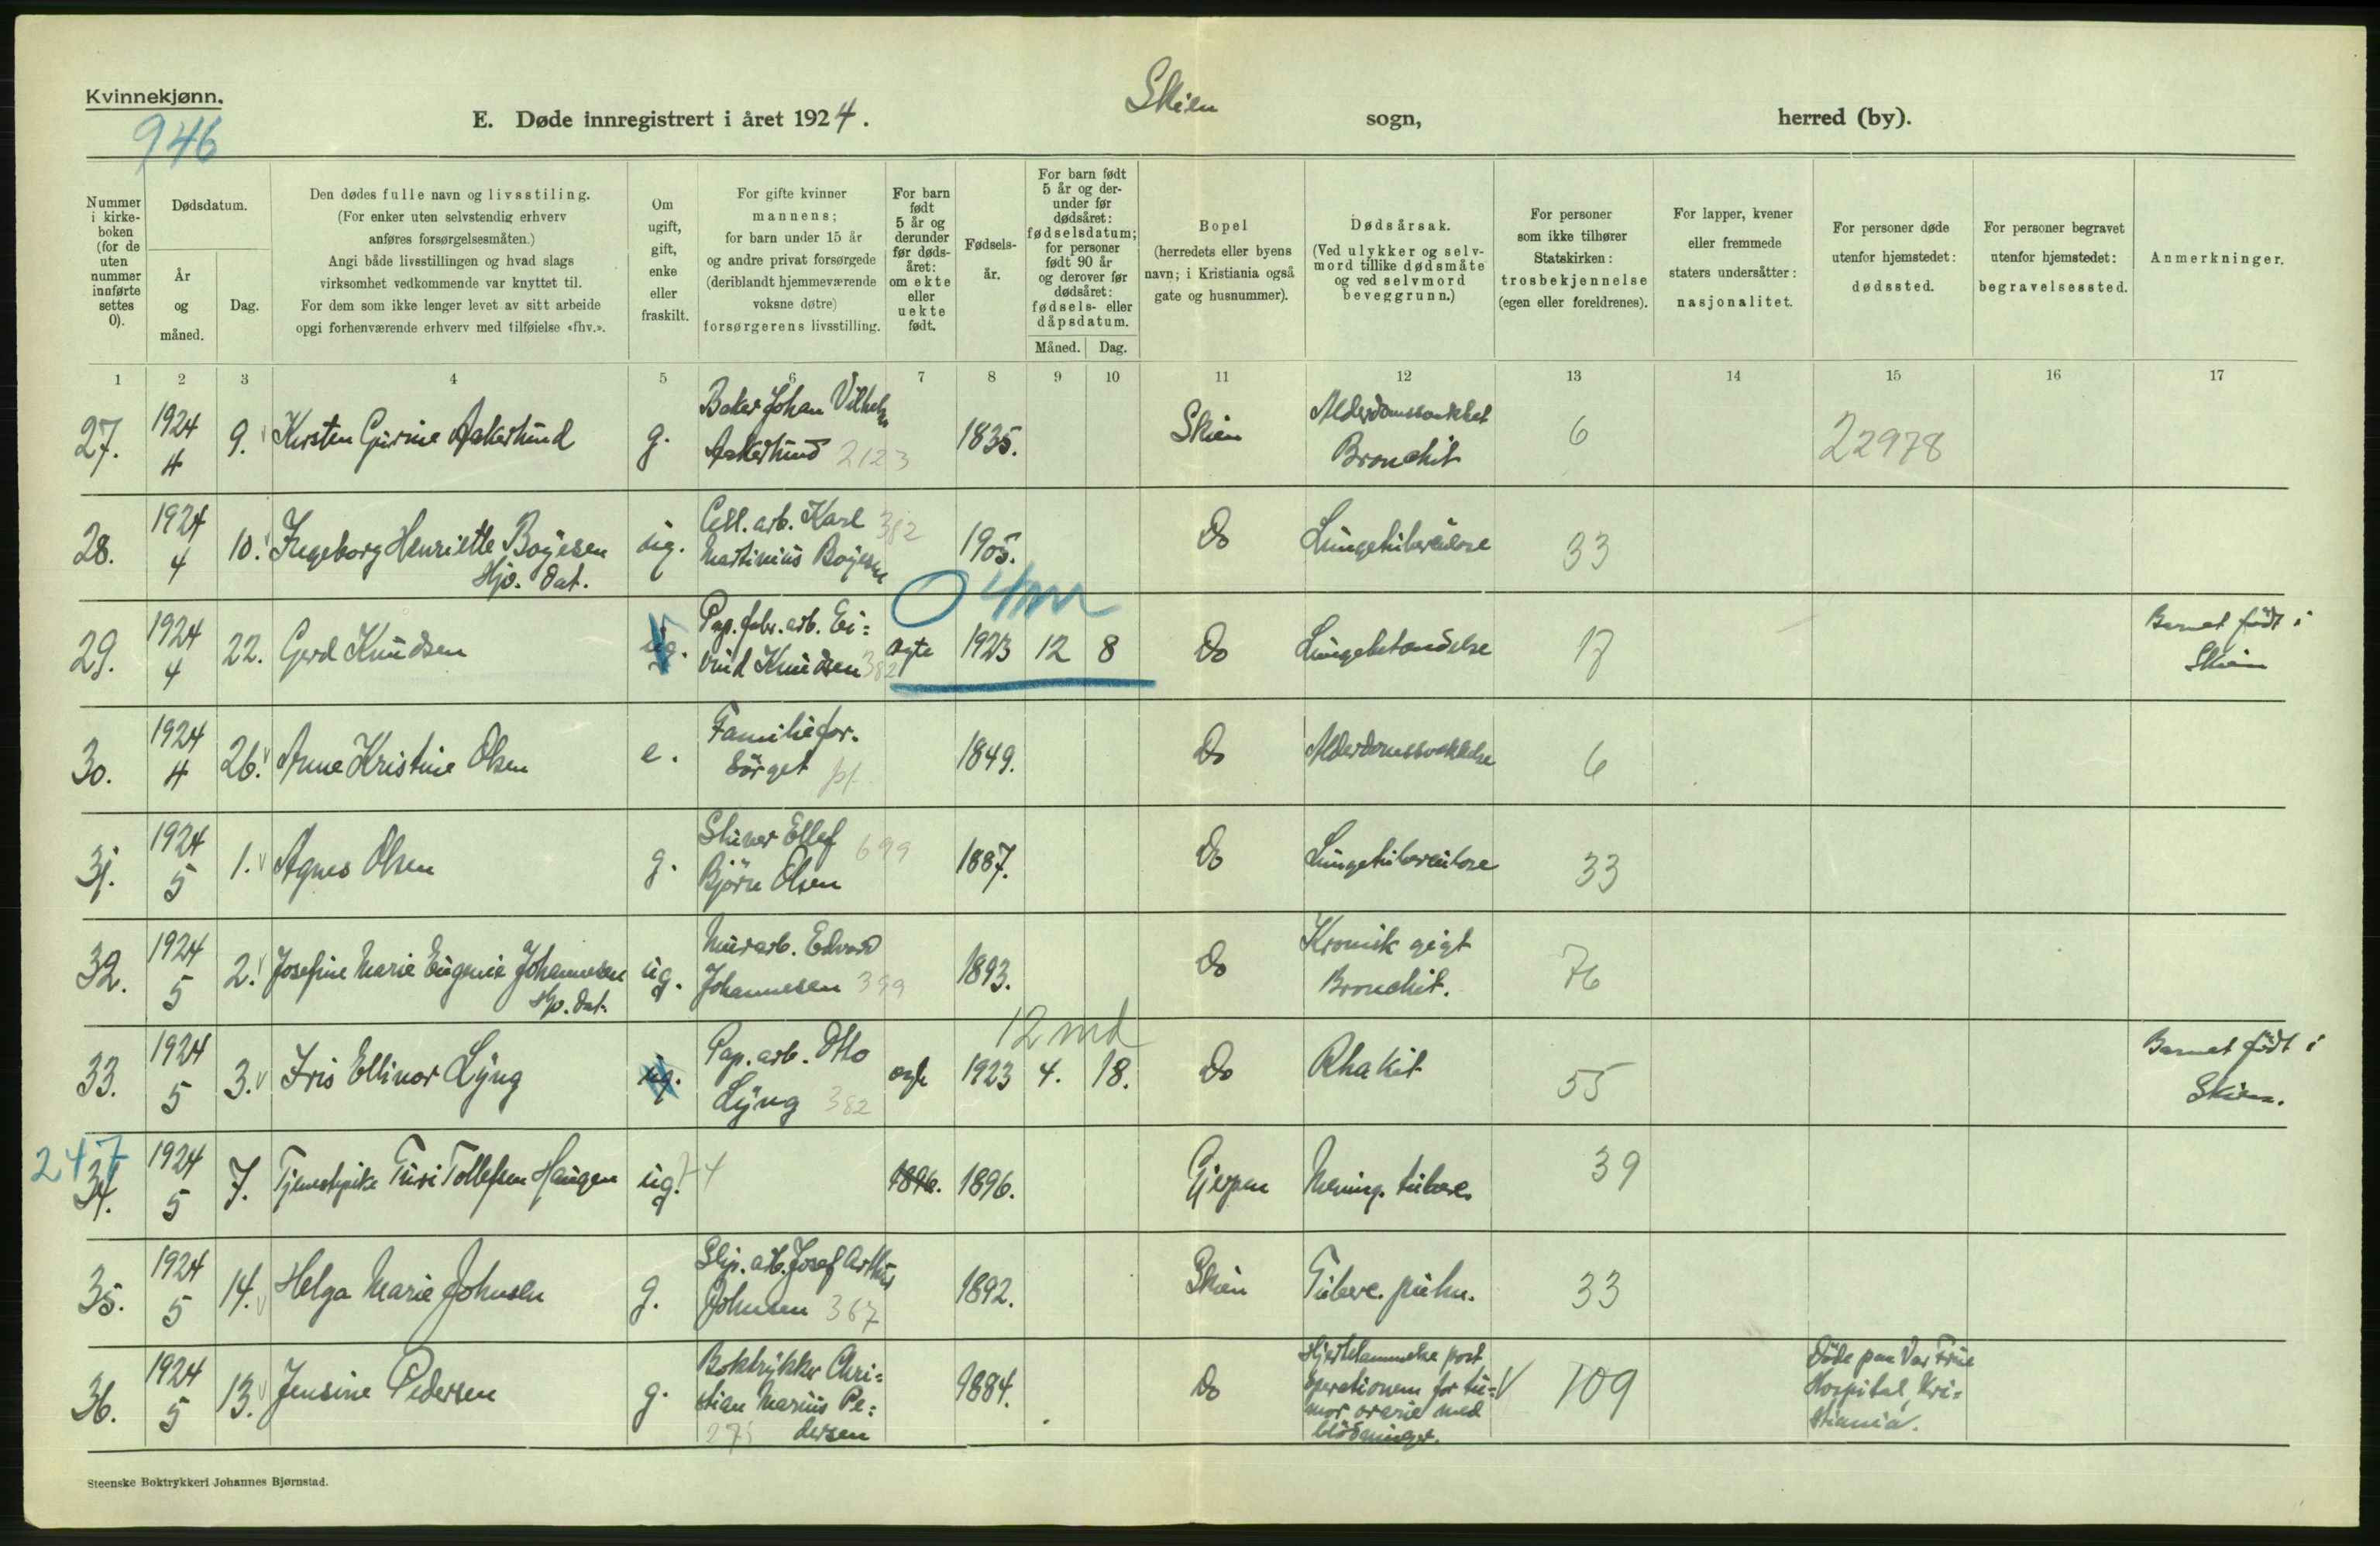 Kvinnekjønn.
946
E. Døde innregistrert i året 1924.
Skien
sogn,
herred (by).
Nummer i kirke-boken (for de uten nummer innførte settes 0).
Dødsdatum.
År og måned.
Dag.
Den dødes fulle navn og livsstilling.
(For enker uten selvstendig erhverv
anføres forsørgelsesmåten.)
Angi både livsstillingen og hvad slags
virksomhet vedkommende var knyttet til.
For dem som ikke lenger levet av sitt arbeide
opgi forhenværende erhverv med tilføielse «fhv.».
Om ugift, gift, enke eller fraskilt.
For gifte kvinner
mannens;
for barn under 15 år
og andre privat forsørgede
(deriblandt hjemmeværende
voksne døtre)
forsørgerens livsstilling.
For barn født 5 år og derunder før døds-året: om ekte eller uekte født.
Fødsels-år.
For barn født 5 år og der-under før dødsåret: fødselsdatum; for personer født 90 år og derover før dødsåret: fødsels- eller dåpsdatum.
Måned. Dag.
Bopel
(herredets eller byens
navn; i Kristiania også
gate og husnummer).
Dødsårsak.
(Ved ulykker og selv-
mord tillike dødsmåte
og ved selvmord
beveggrunn.)
For personer
som ikke tilhører
Statskirken:
trosbekjennelse
(egen eller foreldrenes).
For lapper, kvener
eller fremmede
staters undersåtter:
nasjonalitet.
For personer døde
utenfor hjemstedet:
dødssted.
For personer begravet
utenfor hjemstedet:
begravelsessted.
Anmerkninger.
1 2 3 4 5 6 7 8 9 10 11 12 13 14 15 16 17
27. 1924 4 9. Kirsten Gurine Askerlund g. Baker Johan Vilhelm
Askerlund 2123 1835. Skien Alderdomssvakhet
Bronchit 6 22978
28. 1924 4 10. Ingeborg Henriette Boyesen
Hjv. dat. ug. Cell. arb. Karl 382
Martinius Boyesen 1905. Do Lungetuberkulose 33
0 4m
29. 1924 4 22. Gerd Knudsen ug. Pap.fabr. arb. Ei=
vind Knudsen 382 egte 1923 12 8 Do Lungebetændelse 17 Barnet født i
Skien
30. 1924 4 26. Anne Kristine Olsen e. Familiefor.
sörget pf. 1849. Do Alderdomssvakkelse 6
31. 1924 5 1. Agnes Olsen g. Skiver Ellef 699
Björn Olsen 1887. Do Lungetuberkulose 33
32. 1924 5 2. Josefine Marie Eugenie Johannesen
Hjv. dat. ug. Murarb. Edvard
Johannesen 399 1893. Do Kronisk gigt
Bronchit. 76
12 md
33. 1924 5 3. Iris Ellinor Lyng ug. Pap. arb. Otto
Lyng 382 egte 1923 4. 18. Do Rhakit 55 Barnet født i
Skien.
247
34. 1924 5 7. Tjenestepike Turi Tollefsen Haugen ug. 74 1896. 1896. Gjerpen Mening. tuberc. 39
35. 1924 5 14. Helga Marie Johnsen g. Slip. arb. Josef Arthur
Johnsen 367 1892. Skien Tuberc. pulm. 33
36. 1924 5 13. Jensine Pedersen g. Boktrykker Chri=
stian Marius Pe=
dersen 1884. Do Hjertelammelse post
operationem for tu=
mor ovarie med
blödninger. 109 Döde paa Vor Frue
Hospital, Kri=
stiania.
Steenske Boktrykkeri Johannes Bjørnstad.